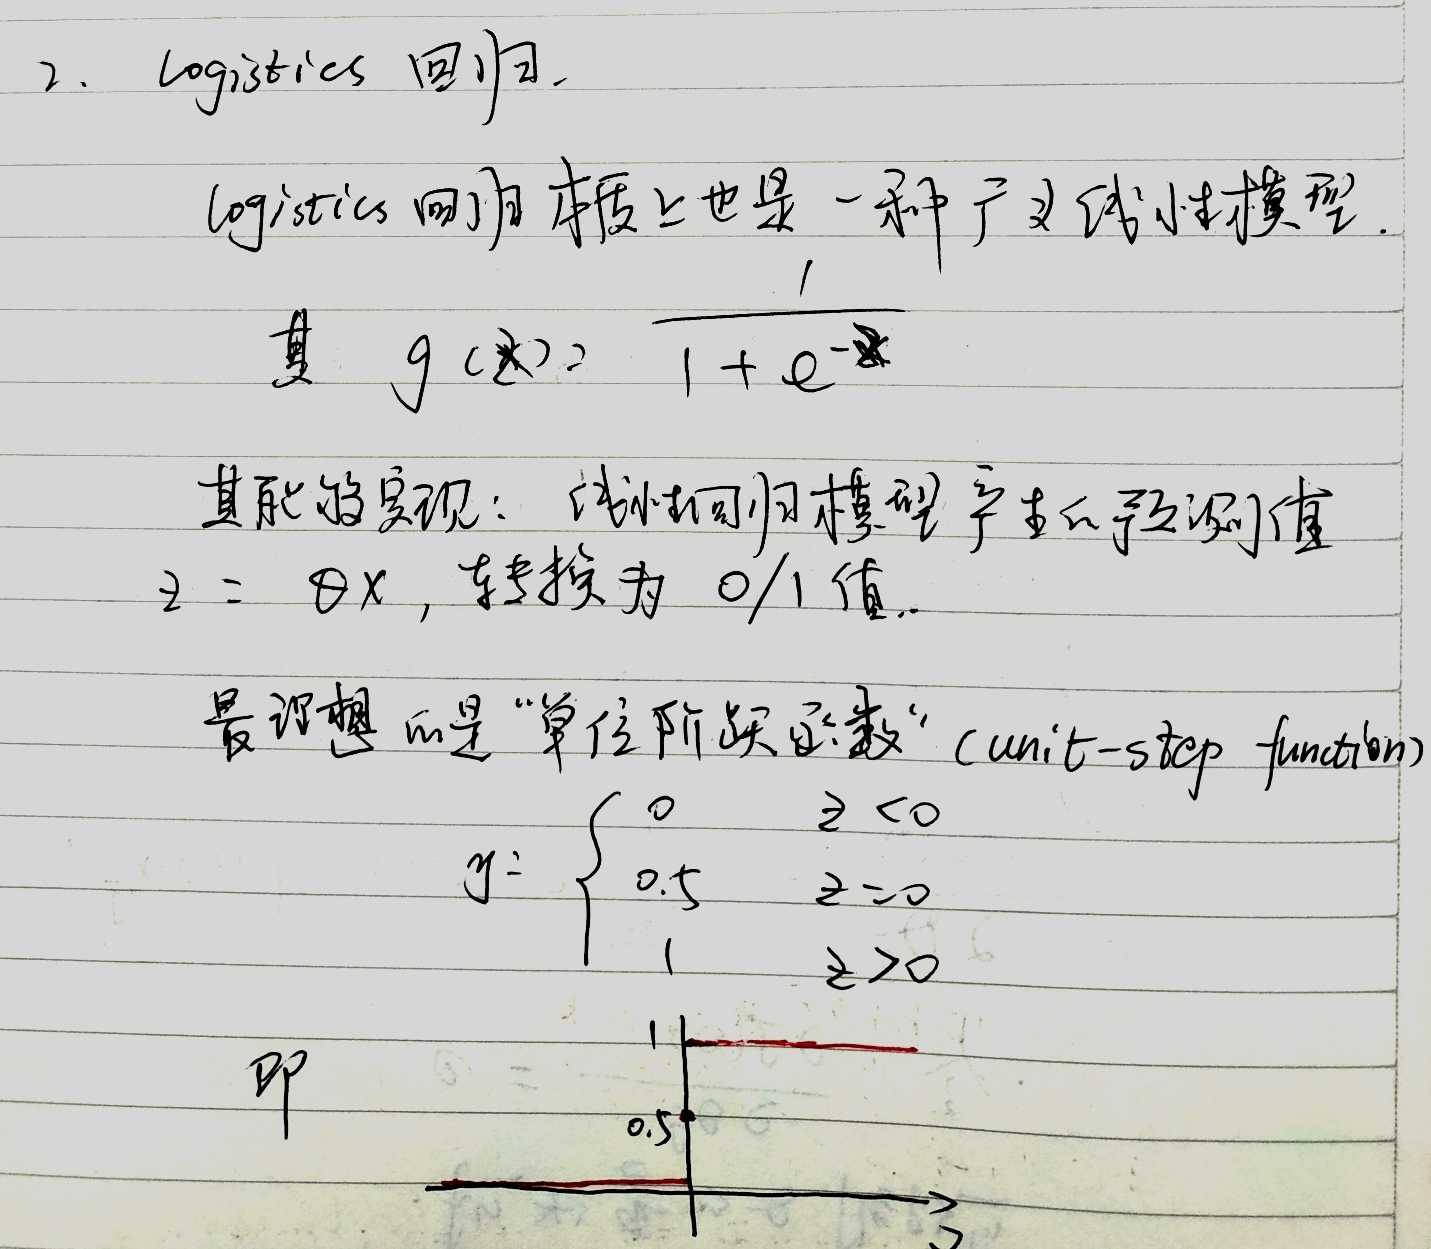 2. Logistics 回归.
logistics 回归本质上也是一种广义线性模型.
其 g(z) = 1 / (1 + e^-z)
其能够实现: 线性回归模型产生的预测值
z = θx, 转换为 0/1 值..
最理想的是“单位阶跃函数” (unit-step function)
y = { 0 z<0
0.5 z=0
1 z>0
即
1
0.5
z